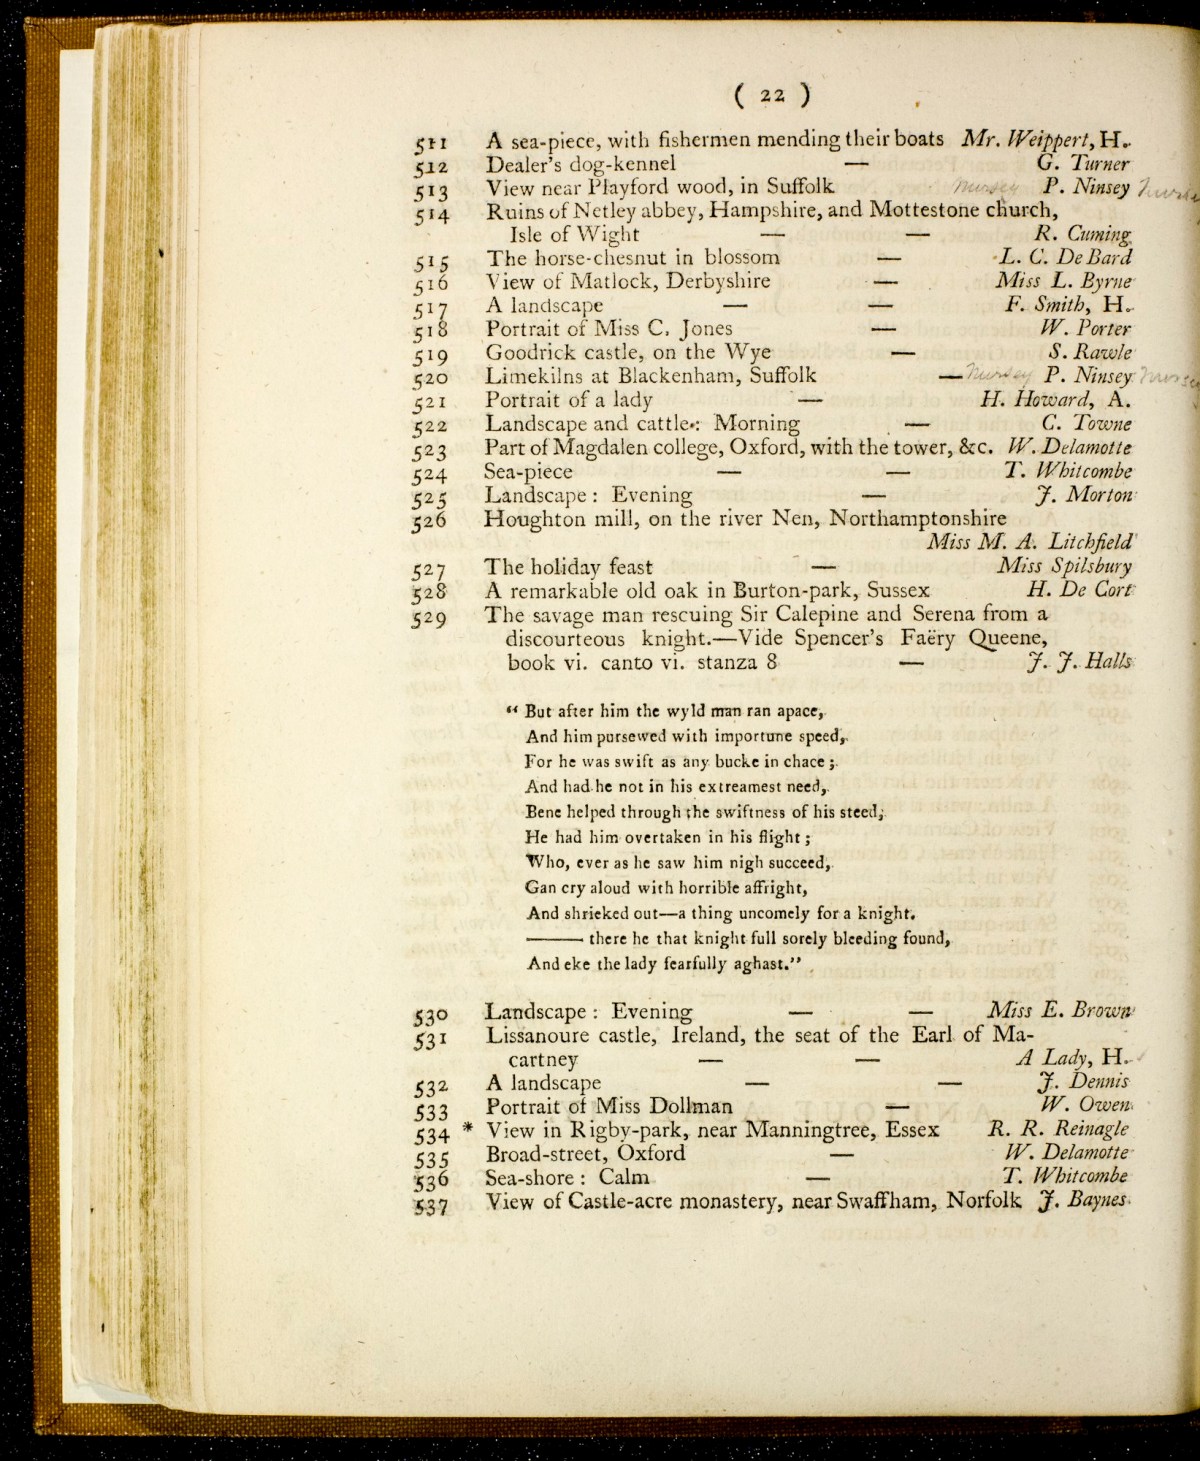 ( 22 )
511 A sea-piece, with fishermen mending their boats Mr. Weippert, H.
512 Dealer's dog-kennel — G. Turner
513 View near Playford wood, in Suffolk Nursey P. Ninsey Nursey
514 Ruins of Netley abbey, Hampshire, and Mottestone church,
Isle of Wight — — R. Cuming
515 The horse-chesnut in blossom — L. C. De Bard
516 View of Matlock, Derbyshire — Miss L. Byrne
517 A landscape — — F. Smith, H.
518 Portrait of Miss C. Jones — W. Porter
519 Goodrick castle, on the Wye — S. Rawle
520 Limekilns at Blackenham, Suffolk — Nursey P. Ninsey Nursey
521 Portrait of a lady — H. Howard, A.
522 Landscape and cattle: Morning — C. Towne
523 Part of Magdalen college, Oxford, with the tower, &c. W. Delamotte
524 Sea-piece — — T. Whitcombe
525 Landscape : Evening — J. Morton
526 Houghton mill, on the river Nen, Northamptonshire
Miss M. A. Litchfield
527 The holiday feast — Miss Spilsbury
528 A remarkable old oak in Burton-park, Sussex H. De Cort
529 The savage man rescuing Sir Calepine and Serena from a
discourteous knight.—Vide Spencer's Faëry Queene,
book vi. canto vi. stanza 8 — J. J. Halls
“ But after him the wyld man ran apace,
And him pursewed with importune speed,
For he was swift as any bucke in chace ;
And had he not in his extreamest need,
Bene helped through the swiftness of his steed,
He had him overtaken in his flight ;
Who, ever as he saw him nigh succeed,
Gan cry aloud with horrible affright,
And shrieked out—a thing uncomely for a knight.
——— there he that knight full sorely bleeding found,
And eke the lady fearfully aghast.”
530 Landscape : Evening — — Miss E. Brown
531 Lissanoure castle, Ireland, the seat of the Earl of Ma-
cartney — — A Lady, H.
532 A landscape — — J. Dennis
533 Portrait of Miss Dollman — W. Owen
534 * View in Rigby-park, near Manningtree, Essex R. R. Reinagle
535 Broad-street, Oxford — W. Delamotte
536 Sea-shore : Calm — T. Whitcombe
537 View of Castle-acre monastery, near Swaffham, Norfolk J. Baynes